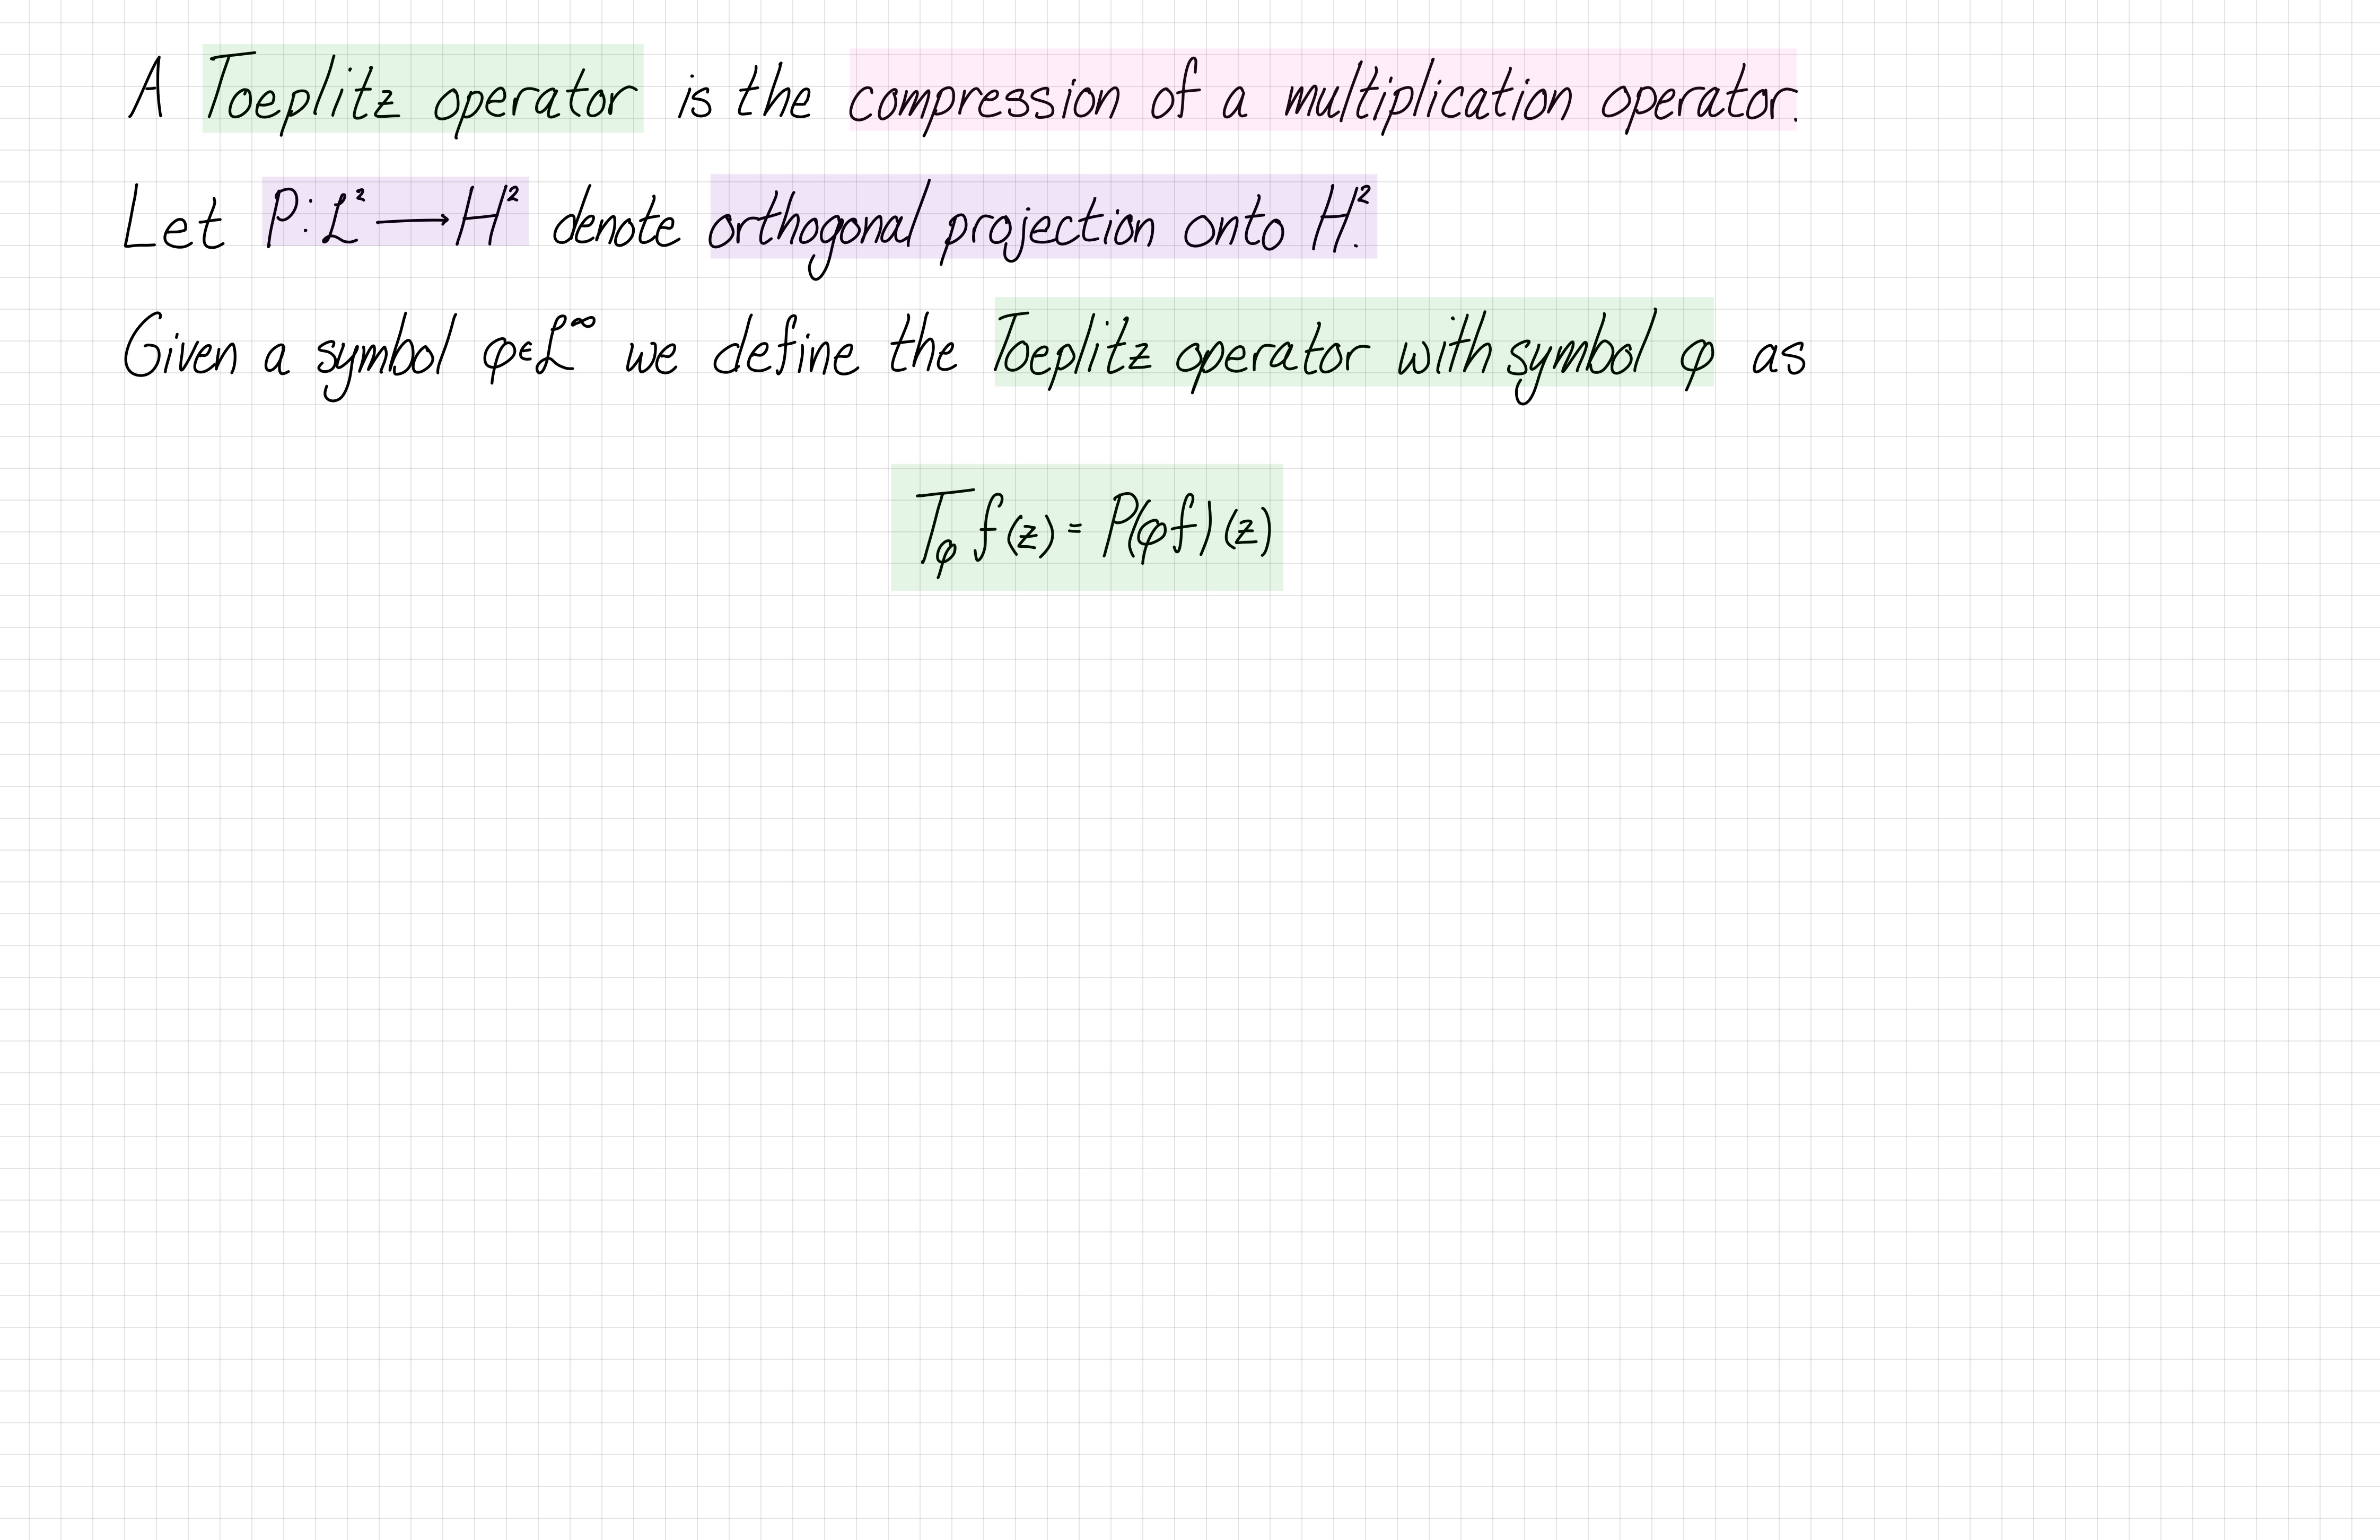 A Toeplitz operator is the compression of a multiplication operator.
Let P: L² ⟶ H² denote orthogonal projection onto H².
Given a symbol φ∈L^∞ we define the Toeplitz operator with symbol φ as
T_φ f(z) = P(φf)(z)